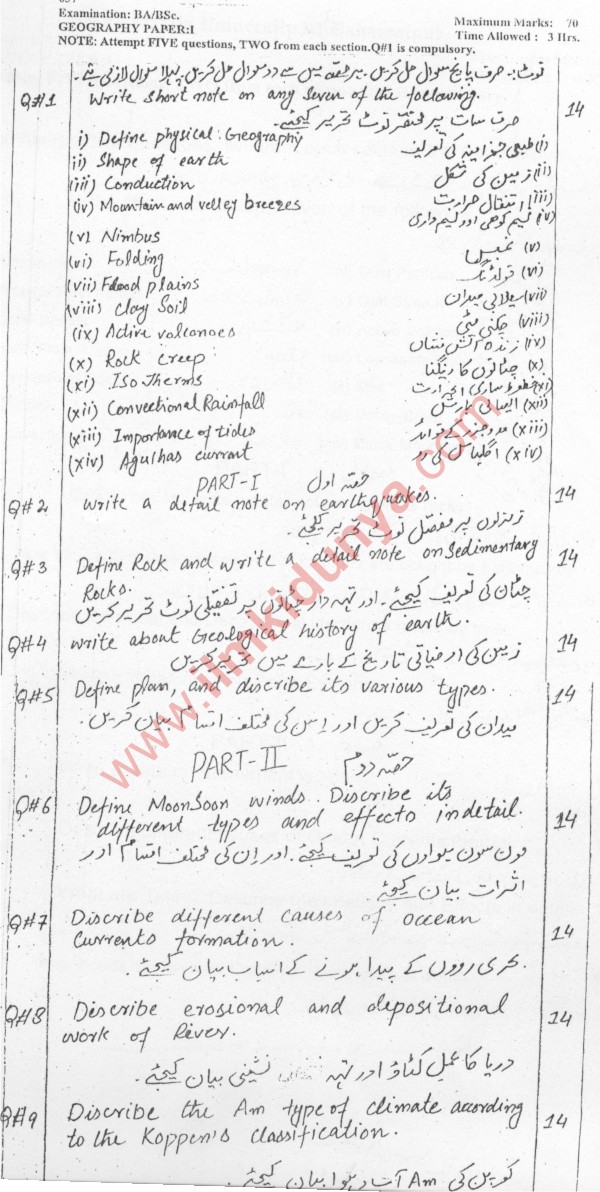 Examination: BA/BSc.
GEOGRAPHY PAPER:I
Maximum Marks: 70
Time Allowed : 3 Hrs.
NOTE: Attempt FIVE questions, TWO from each section.Q#1 is compulsory.
نوٹ:۔ صرف پانچ سوال حل کریں۔ ہر حصے میں سے دو سوال حل کریں۔ پہلا سوال لازمی ہے۔
Q#1 Write short note on any seven of the following. 14
صرف سات پر مختصر نوٹ تحریر کیجئے۔
i) Define physical Geography (i) طبعی جغرافیہ کی تعریف
ii) Shape of earth (ii) زمین کی شکل
(iii) Conduction (iii) انتقال حرارت
(iv) Mountain and velley breezes (iv) نسیم کوہی اور نسیم وادی
(v) Nimbus (v)
(vi) Folding (vi) فولڈنگ
(vii) Flood plains (vii) سیلابی میدان
(viii) Clay Soil (viii) چکنی مٹی
(ix) Active volcanoes (iv) زندہ آتش فشاں
(x) Rock creep (x) چٹانوں کا رینگنا
(xi) Iso Therms (xi) خطوط مساوی الحرارت
(xii) Convectional Rainfall (xii) بارش
(xiii) Importance of tides (xiii) مدوجزر کے فوائد
(xiv) Agulhas currant (xiv) اگلہاس کی رو
PART-I حصہ اول
Q#2 write a detail note on earthquakes. 14
زلزلوں پر مفصل نوٹ تحریر کیجئے۔
Q#3 Define Rock and write a detail note on Sedimentary 14
Rocks.
چٹان کی تعریف کیجئے۔ اور تہہ دار چٹانوں پر تفصیلی نوٹ تحریر کریں
Q#4 write about Geological history of earth. 14
زمین کی ارضیاتی تاریخ کے بارے میں تحریر کریں
Q#5 Define plan, and discribe its various types. 14
میدان کی تعریف کریں اور اس کی مختلف اقسام بیان کریں۔
PART-II حصہ دوم
Q#6 Define MoonSoon winds. Discribe its
different types and effects in detail. 14
مون سون ہواؤں کی تعریف کیجئے۔ اور ان کی مختلف اقسام اور
اثرات بیان کیجئے۔
Q#7 Discribe different causes of occean
currents formation. 14
بحری روؤں کے پیدا ہونے کے اسباب بیان کیجئے۔
Q#8 Discribe erosional and depositional
work of River. 14
دریا کا عمل کٹاؤ اور تہہ نشینی بیان کیجئے۔
Q#9 Discribe the Am type of climate according
to the Koppen's classification. 14
کوپن کی Am آب و ہوا بیان کیجئے۔
www.ilmkidunya.com